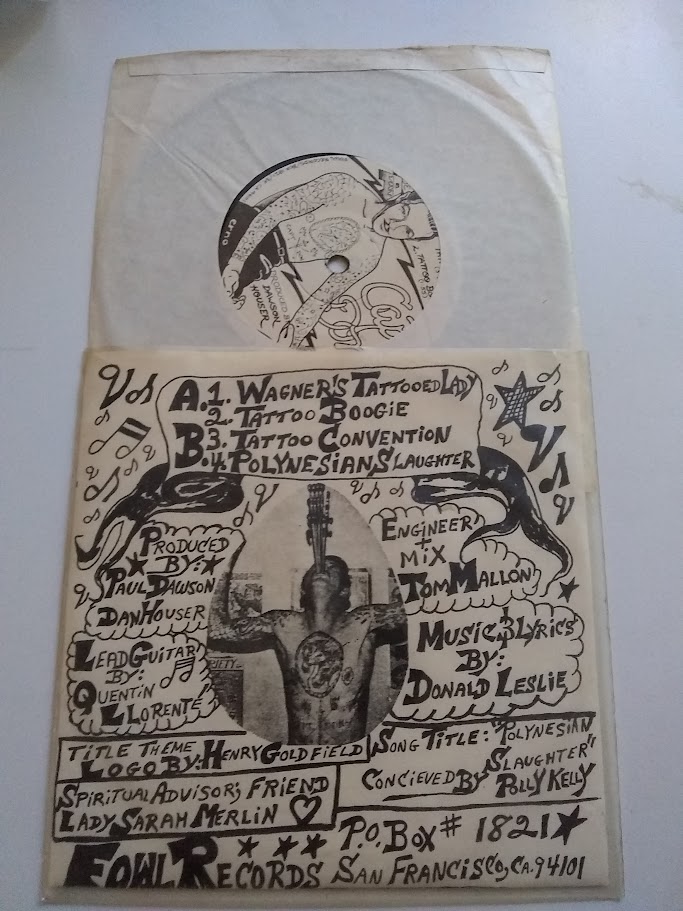 erna
L. TATTOO
PRODUCED BY
DAWSON
HOUSER
A.1. WAGNER'S TATTOOED LADY
2. TATTOO BOOGIE
B.3. TATTOO CONVENTION
4. POLYNESIAN SLAUGHTER
PRODUCED
BY:
PAUL DAWSON
DAN HOUSER
ENGINEER
+
MIX
TOM MALLON
LEAD GUITAR
BY:
QUENTIN
LLORENTE
MUSIC & LYRICS
BY:
DONALD LESLIE
TITLE THEME
LOGO BY: HENRY GOLDFIELD
SONG TITLE: "POLYNESIAN
SLAUGHTER"
CONCIEVED BY POLLY KELLY
SPIRITUAL ADVISOR; FRIEND
LADY SARAH MERLIN
FOWL RECORDS
P.O. BOX # 1821
SAN FRANCISCO, CA. 94101